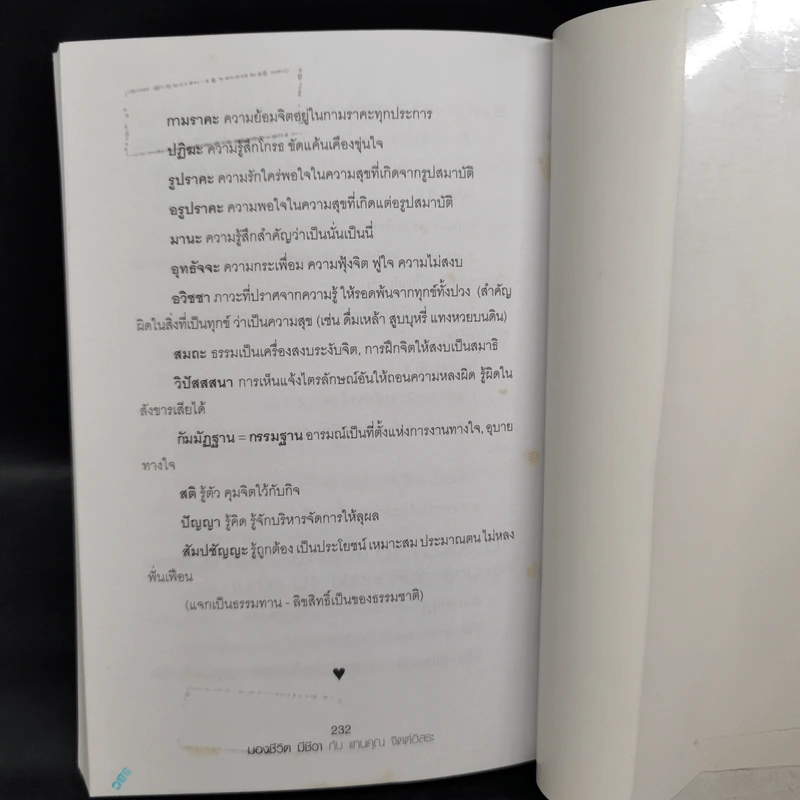 กามราคะ ความย้อมจิตอยู่ในกามราคะทุกประการ
ปฏิฆะ ความรู้สึกโกรธ ขัดแค้นเคืองขุ่นใจ
รูปราคะ ความรักใคร่พอใจในความสุขที่เกิดจากรูปสมาบัติ
อรูปราคะ ความพอใจในความสุขที่เกิดแต่อรูปสมาบัติ
มานะ ความรู้สึกสำคัญว่าเป็นนั่นเป็นนี่
อุทธัจจะ ความกระเพื่อม ความฟุ้งจิต ฟูใจ ความไม่สงบ
อวิชชา ภาวะที่ปราศจากความรู้ ให้รอดพ้นจากทุกข์ทั้งปวง (สำคัญ
ผิดในสิ่งที่เป็นทุกข์ ว่าเป็นความสุข (เช่น ดื่มเหล้า สูบบุหรี่ แทงหวยบนดิน)
สมถะ ธรรมเป็นเครื่องสงบระงับจิต, การฝึกจิตให้สงบเป็นสมาธิ
วิปัสสสนา การเห็นแจ้งไตรลักษณ์อันให้ถอนความหลงผิด รู้ผิดใน
สังขารเสียได้
กัมมัฏฐาน = กรรมฐาน อารมณ์เป็นที่ตั้งแห่งการงานทางใจ, อุบาย
ทางใจ
สติ รู้ตัว คุมจิตใว้กับกิจ
ปัญญา รู้คิด รู้จักบริหารจัดการให้ลุผล
สัมปชัญญะ รู้ถูกต้อง เป็นประโยชน์ เหมาะสม ประมาณตน ไม่หลง
ฟั่นเฟือน
(แจกเป็นธรรมทาน - ลิขสิทธิ์เป็นของธรรมชาติ)
232
มองชีวิต มีชีวา กับ แทนคุณ จิตต์อิสระ
SBC